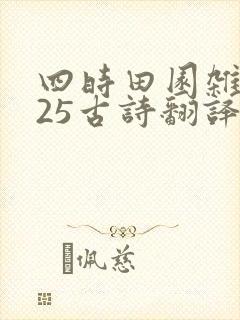 四時田園雜
25古詩翻譯
佩慈